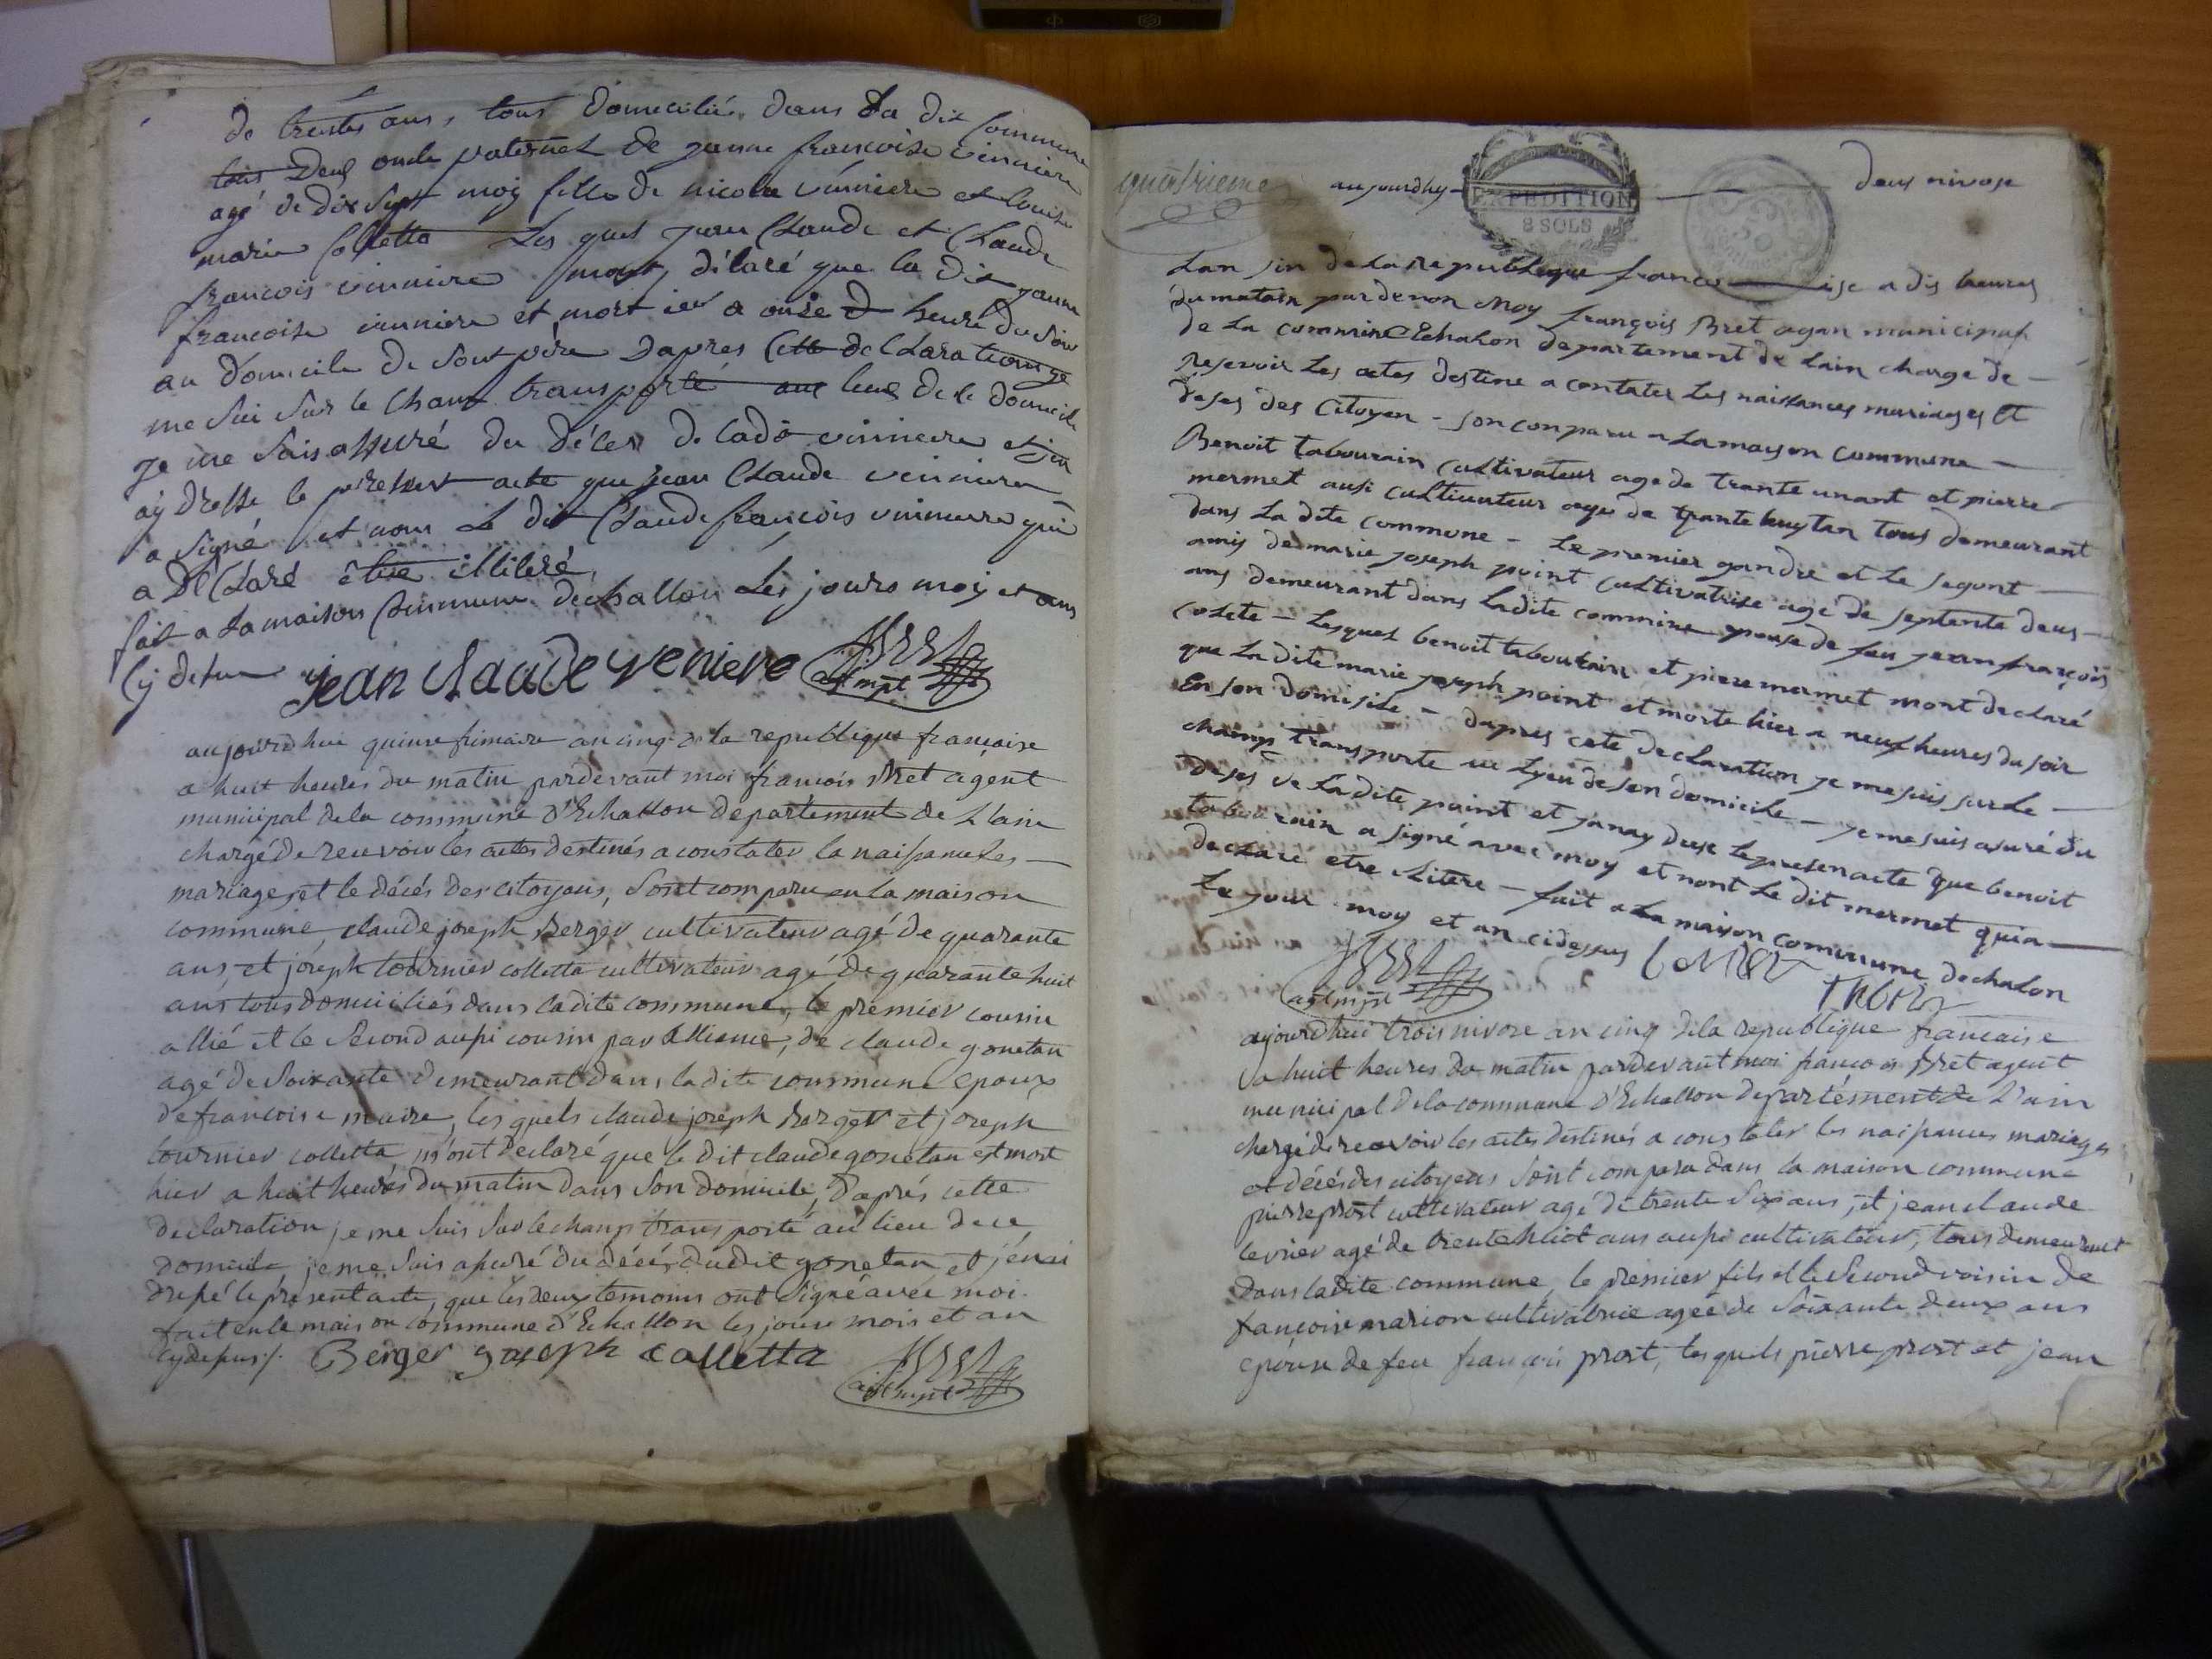 de trentes ans, tous domicilié dans la dix commune
tous deus oncle paternel de janne francoise vinniere
agé de dix sept moij fille de nicola vinniere et louise
marie Colletta Les quel jean Claude et Claude
francois vinniere mont déclaré que la dite janne
francoise vinniere et mort ier a onze heure du soir
au domicile de sont père Dapres Cette declaration je
me sui sur le Champ transporté aux lieus de le domicile
je me suis assuré du décer de ladte vinniere et jen
aÿ dresse le present acte que jean Claude vinniere
a signé et nom Le dit Claude françois vinnierre qui
a déClaré être illiteré
fait a La maison Commune dechallon Les jours moij et ans
Cy desus jean claude veniere
agt mpl
aujourdhui quinze frimaire an cinq de la republique francaise
a huit heures du matin pardevant moi francois Bret agent
municipal de la commune d'Echallon departement de L'ain
chargé de recevoir les actes destinés a constater la naissance Les
mariages et le décés des citoyens, Sont comparu en la maison
commune, claude joseph Berger cultivateur agé de quarante
ans, et joseph tournier colletta cultivateur agé de quarante huit
ans tous domiciliés dans ladite commune, le premier cousin
allié et le Second aussi cousin par alliance, de claude gonetan
agé de Soixante demeurant dans ladite commune epoux
de francoise maire, les quels claude joseph Berger et joseph
tournier colletta m'ont declaré que le dit claude gonetan est mort
hier a huit heures du matin dans Son domicile, d'aprés cette
declaration je me Suis Sur le champ transporté au lieu de ce
domicile je me Suis assuré du décés dudit gonetan et j'en ai
dressé le présent acte, que les deux temoins ont Signé avec moi
fait en la maison commune d'Echallon les jour mois et an
cydessus ./. Berger joseph colletta
agt mpl
quatrieme aujourdhuy EXPEDITION deus nivose
8 SOLS
Lan sin de la Republique francoise a dis heures
du matain par denon Moy françois Bret agan municipal
de La commine Echalon departement de Lain charge de
resevoir Les actes destine a contater Les naissances mariages et
deses des Citoyen - son conparu a La maison commune
Benoit tabourain cultivateur age de trante unant et pierre
mermet ausi cultivateur age de trante huytan tous demeurant
dans La dite commune - Le premier gandre et Le segont
amis de marie joseph point cultivatrise age de septente deus
ans demeurant dans Ladite commine epouse de feu jean françois
colete - Lesquel benoit tabourain et piere mermet mont declaré
que La dite marie joseph point et morte hier a neuf heures du soir
En son domisile - dapres cete declaration je me suis sur Le
champ transporte au Lyeu de son domicile - je me suis asuré du
deses de Ladite point et janay dresé Le presen acte que benoit
tabourain a signé avec moy et nont Le dit mermet qui a
declare etre ilitere - fait a La maison commune dechalon
Le jour moy et an cidessus
agt mpl
aujourd'hui trois nivose an cinq de la republique francaise
a huit heures du matin pardevant moi francois Bret agent
municipal de la commune d'Echallon departément de L'ain
chargé de recevoir les actes destinés a constater les naissances mariages
et décés des citoyens Sont comparu dans la maison commune
pierre prost cultivateur agé de trente Six ans, et jean claude
levrier agé de trente huit ans aussi cultivateur, tous demeurant
dans ladite commune, le premier fils et le Second voisin de
francoise marion cultivatrice agée de Soixante deux ans
epouse de feu francois prost, les quels pierre prost et jean